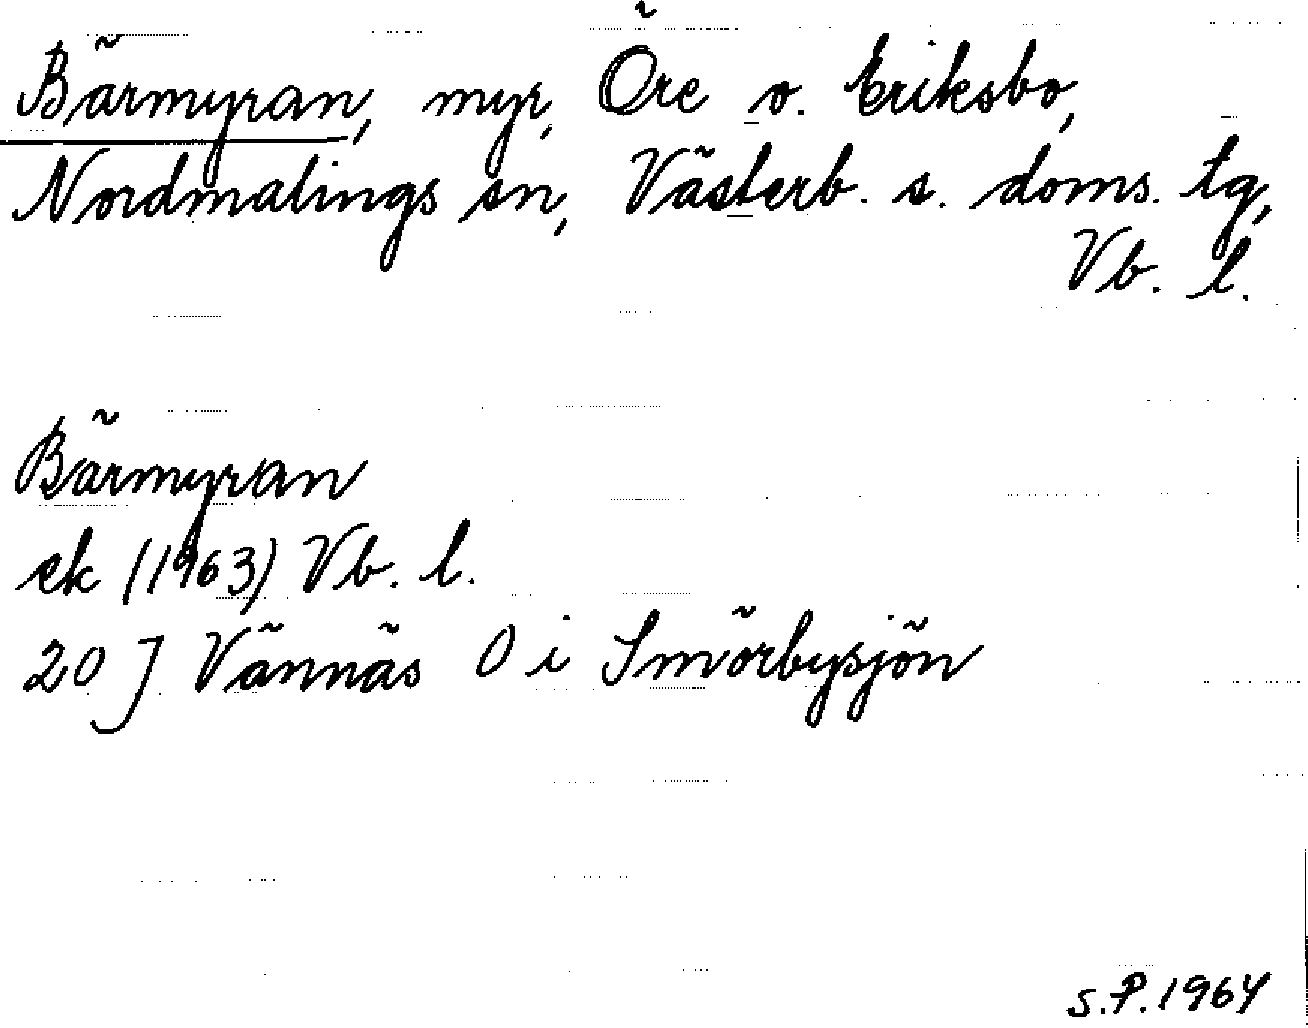 Bärmyran, myr, Öre o. Eriksbo,
Nordmalings sn, Västerb. s. doms. tg,
Vb. l.
Bärmyran
ek (1963) Vb. l.
20 J Vännäs O i Smörbysjön
S.P. 1964